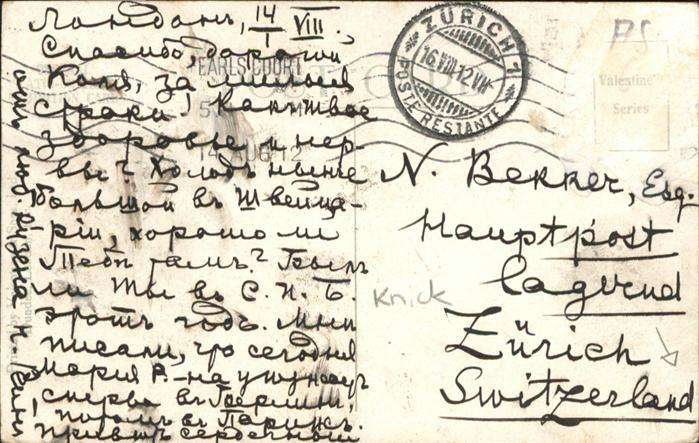 Лондонъ, 14/1 VIII.,
Спасибо, дорогой
Коля, за милыя
строки! Какъ твое
здоровье и нер-
вы? Холодъ нынче
большой въ Швейца-
ріи, хорошо ли
Тебѣ тамъ? Былъ
ли Ты въ С. П. Б.
этотъ годъ. Мнѣ
писали, что сегодня
Марія Р. на
сперва въ Берлинъ,
потомъ въ Парижъ.
Привѣтъ сердечный
EARLS COURT
12
ZÜRICH 1
16.VIII.12.VII
POSTE RESTANTE
Valentine's
Series
N. Bekker, Esq.
Hauptpost
lagernd
Knick
Zürich
Switzerland